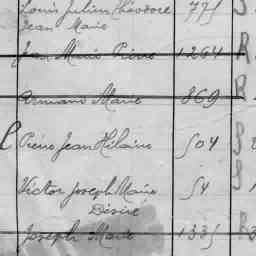 Louis Julien Théodore 771 S
Jean Marie
Jean Marie Pierre 1264 R
Armand Marie 869 R
Pierre Jean Hilaire 504 S
Victor Joseph Marie 54 S
Désiré
Joseph Marie 1335 R